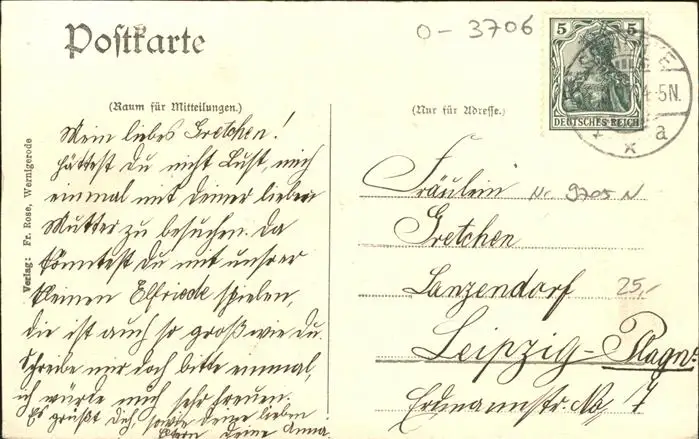 Postkarte
O- 3706
5 5
DEUTSCHES REICH
4-5N.
a
(Raum für Mitteilungen.)
(Nur für Adresse.)
Verlag: Fr. Rose, Wernigerode
Mein liebes Gretchen!
hättest Du nicht Lust, mich
einmal mit deiner lieben
Mutter zu besuchen. Da
könntest Du mit unsrer
kleinen Elfriede spielen,
die ist auch so groß wie du.
Schreibe mir doch bitte einmal,
ich würde mich sehr freuen.
Es grüßt Dich, sowie deine lieben
Eltern deine Anna.
Fräulein
No 9705 N
Gretchen
Lanzendorf
25,-
Leipzig-Plagw.
Erdmannstr. No 7